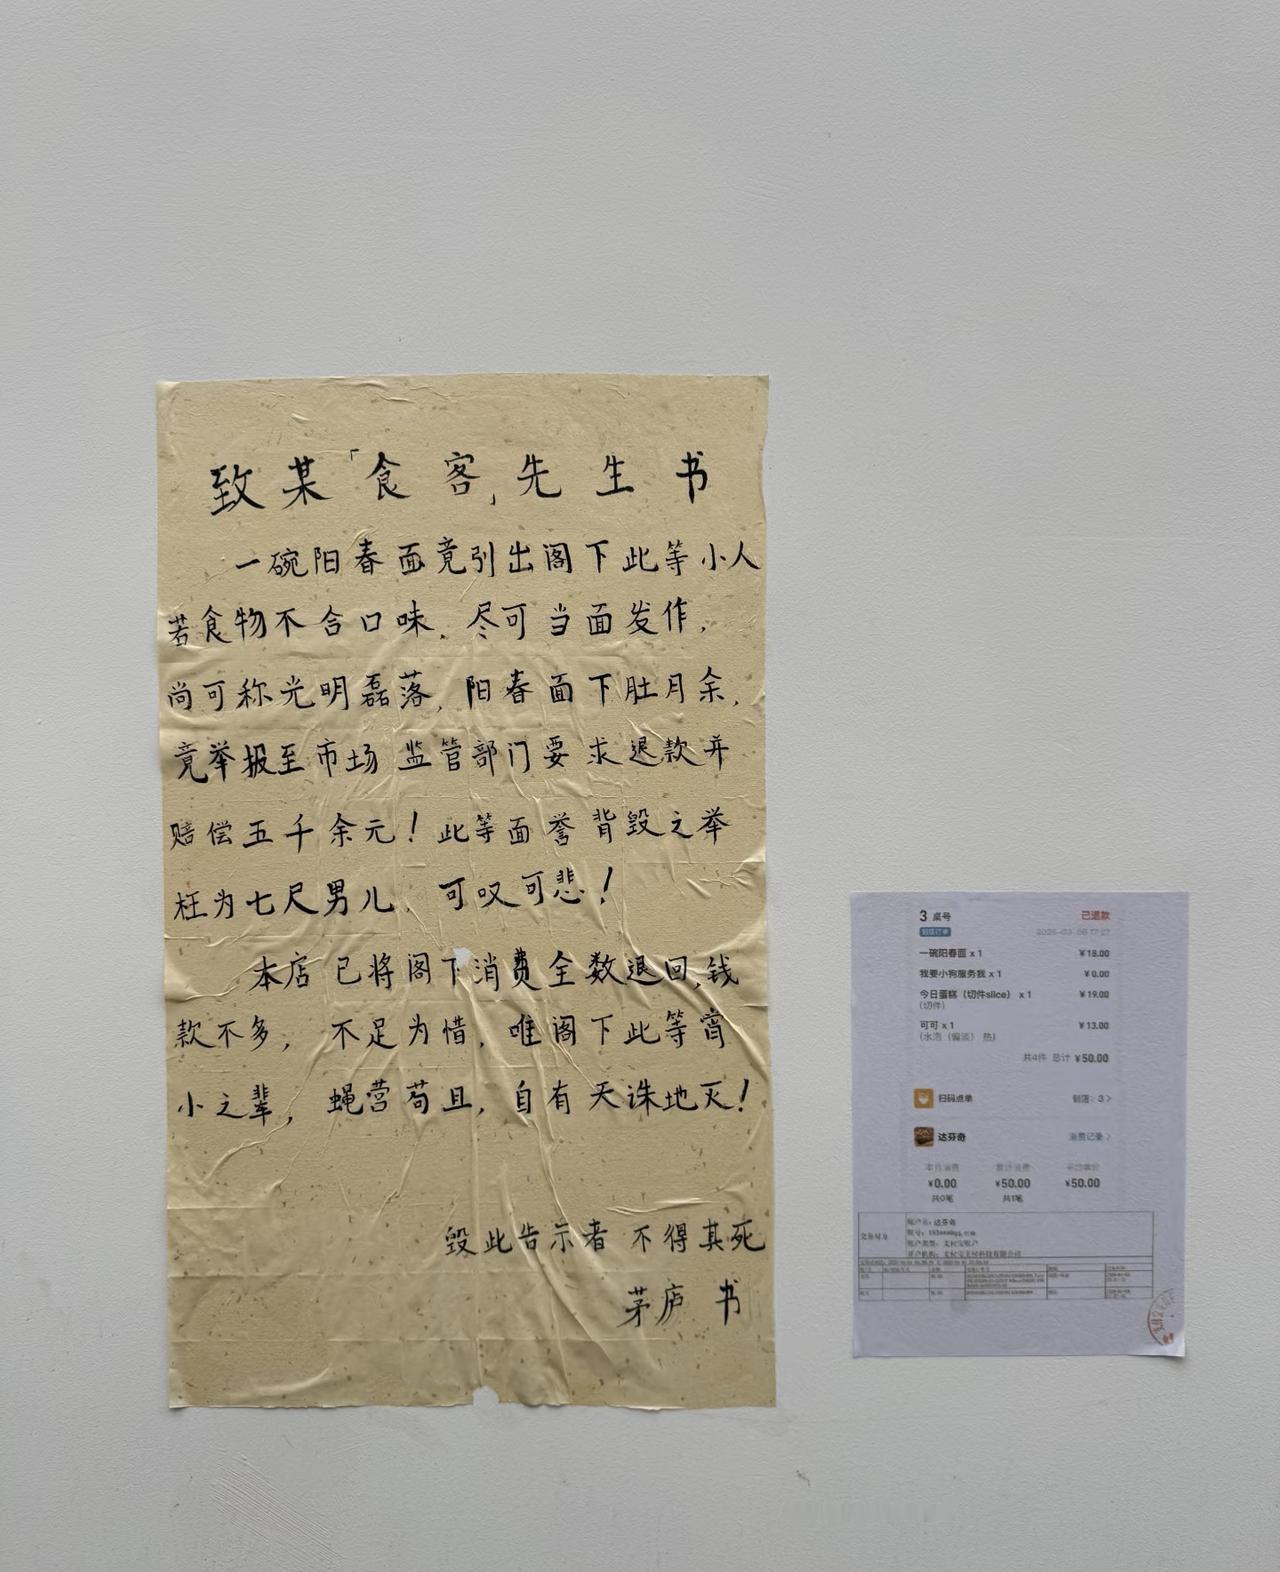 致某「食客」先生书
一碗阳春面竟引出阁下此等小人
若食物不合口味，尽可当面发作，
尚可称光明磊落，阳春面下肚月余，
竟举报至市场监管部门要求退款并
赔偿五千余元！此等面誉背毁之举
枉为七尺男儿，可叹可悲！
本店已将阁下消费全数退回，钱
款不多，不足为惜，唯阁下此等宵
小之辈，蝇营苟且，自有天诛地灭！
毁此告示者 不得其死
茅庐 书
3 桌号 已退款
到店订单
一碗阳春面 x 1 ¥18.00
我要小狗服务我 x 1 ¥0.00
今日蛋糕（切件slice） x 1 ¥19.00
(切件)
可可 x 1 ¥13.00
(水泡（偏淡） 热)
共4件 总计 ¥50.00
扫码点单 到店：3 >
达芬奇 消费记录 >
本月消费 累计消费 平均单价
¥0.00 ¥50.00 ¥50.00
共0笔 共1笔
交易对方
账户名：达芬奇
账户类型：支付宝账户
开户机构：支付宝支付科技有限公司